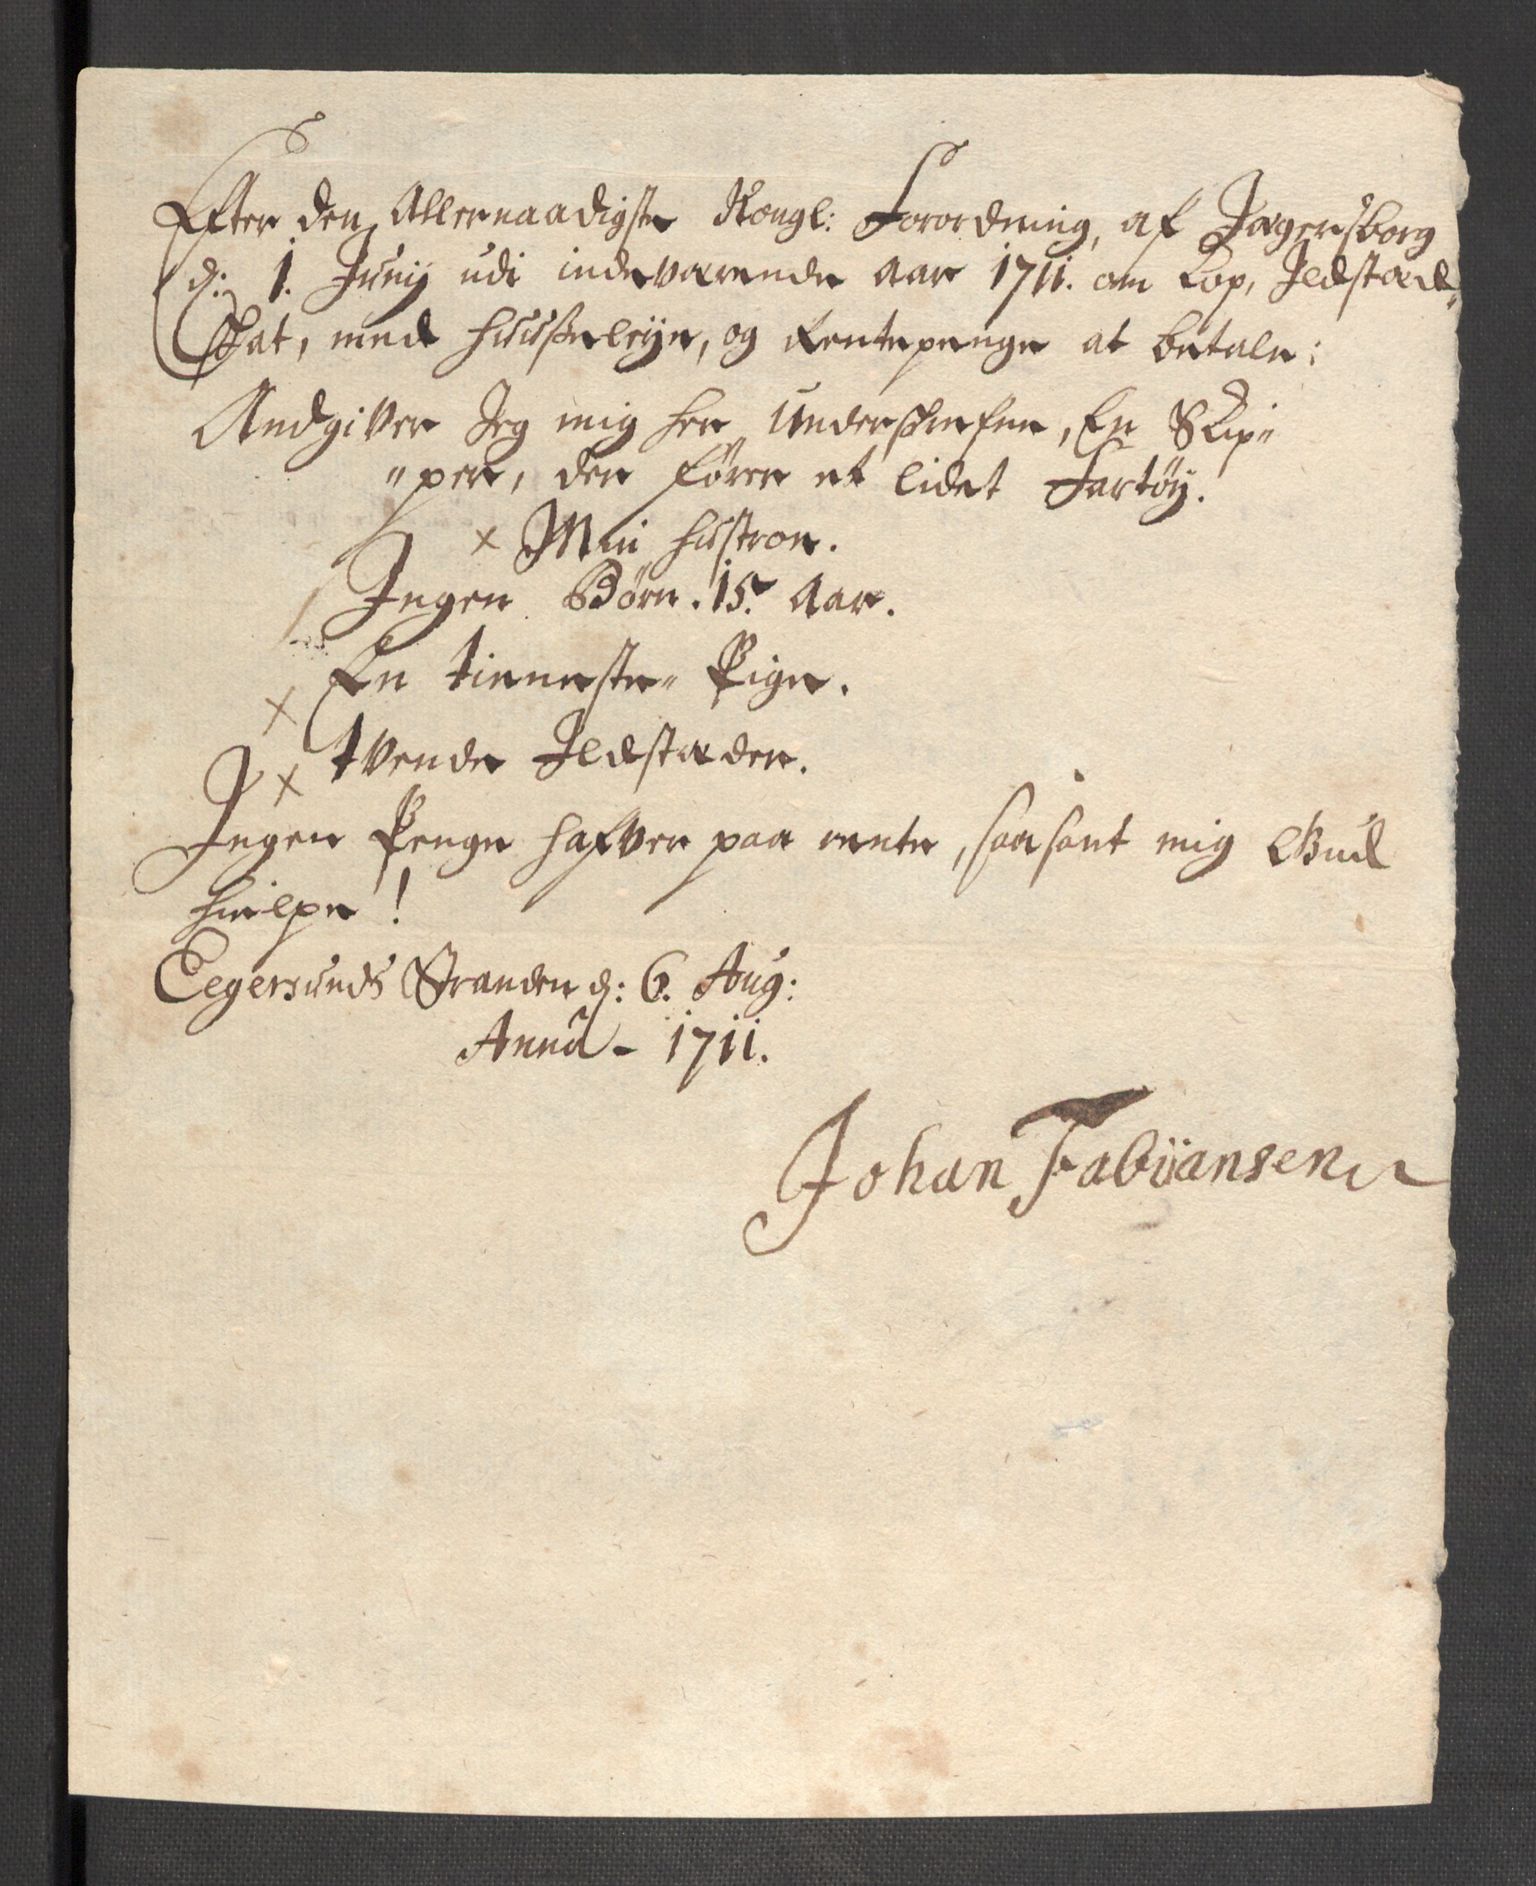 Efter den Allernaadigste Kongl: Forordning, af Jægersborg
d: 1. Junij udi indeværende Aar 1711. om Kop, Ildstæd„
Skat, med huuseleye, og Rentepenge at betale:
Andgiver Jeg mig her underskrefne, En Skip„
„per, der fører et lidet Fartøy.
× Min hustroe.
Ingen Børn. 15. Aar.
× En tieneste„ Pige.
× tvende Ildstæder.
Ingen Penge hafver paa rente, saasant mig Gud
hielpe!
Eegersunds Stranden d: 6. Aug:
Anno - 1711.
Johan Fabiansen